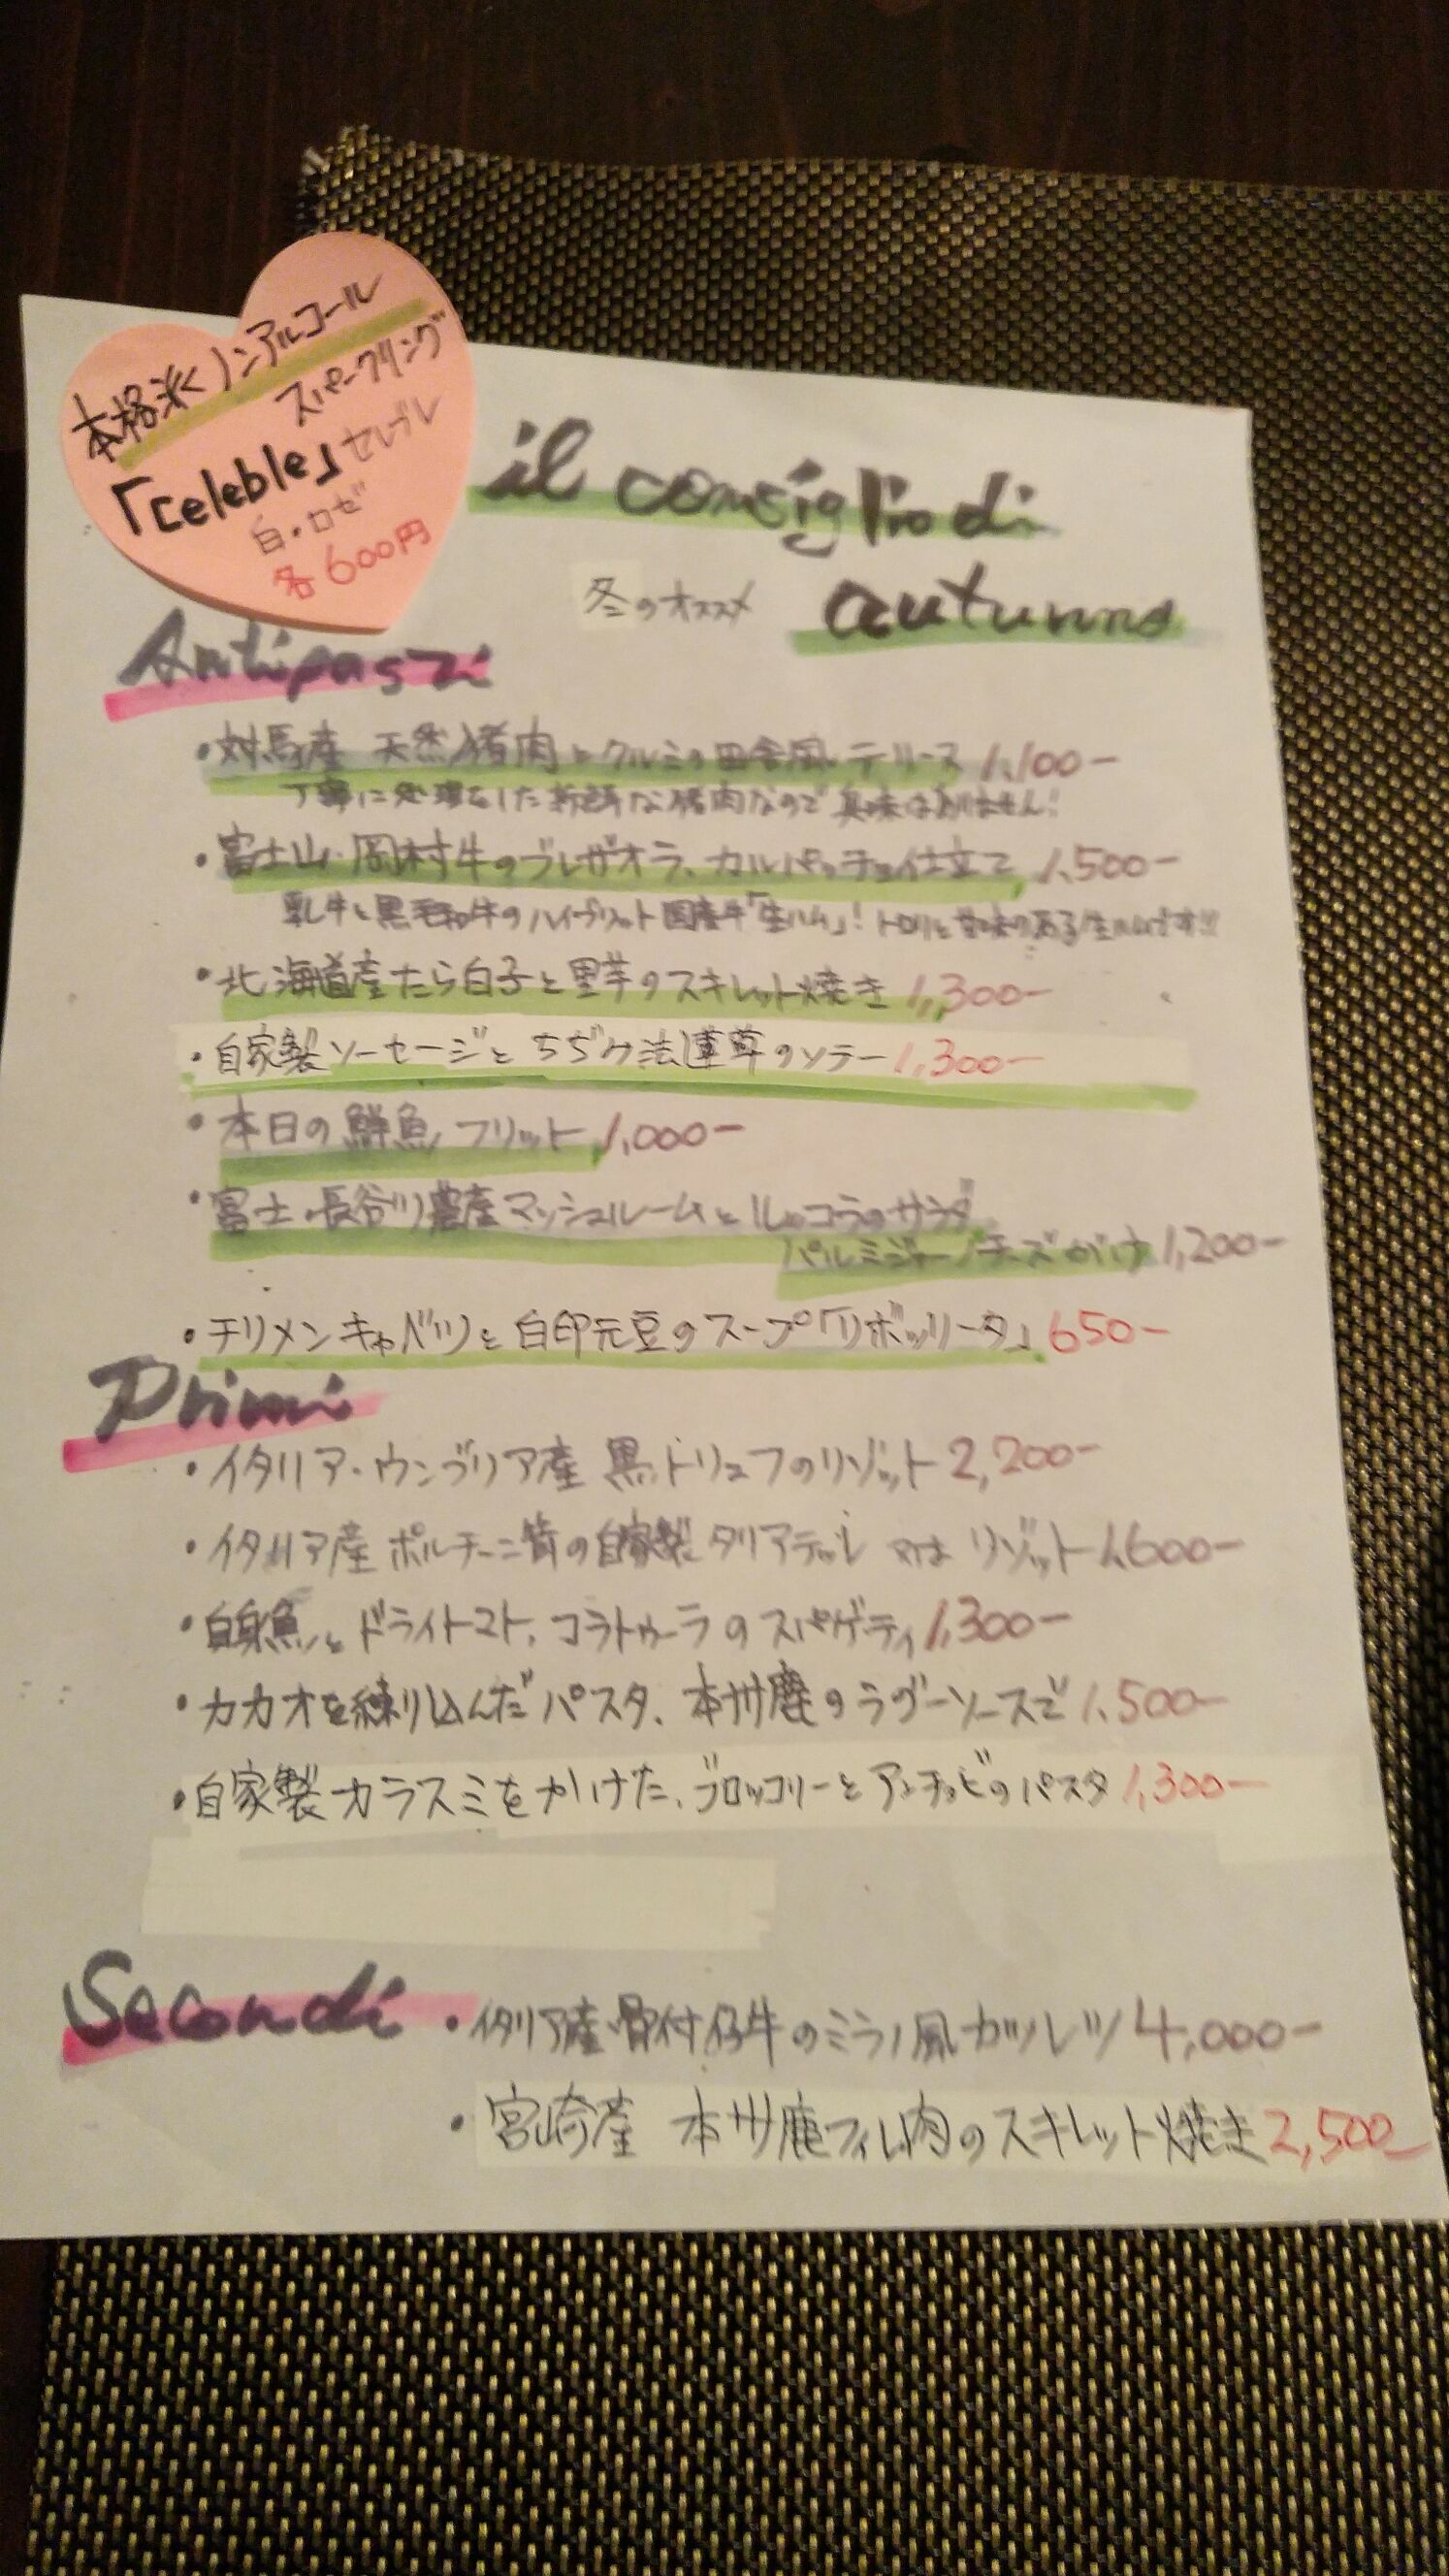 本格派ノンアルコール
スパークリング
「celeble」セレブレ
白・ロゼ
各600円
il consiglio di
冬のオススメ autunno
Antipasti
・対馬産 天然猪肉とクルミの田舎風テリーヌ 1,100-
丁寧に処理をした新鮮な猪肉なので臭味はありません!!
・富士山・岡村牛のブレザオラ、カルパッチョ仕立て 1,500-
乳牛と黒毛和牛のハイブリット国産牛「生ハム」! トロリと甘味のある生ハムです!!
・北海道産たら白子と里芋のスキレット焼き 1,300-
・自家製ソーセージとちぢみ法蓮草のソテー 1,300-
・本日の鮮魚フリット 1,000-
・富士・長谷川農産マッシュルームとルッコラのサラダ
パルミジャーノチーズがけ 1,200-
・チリメンキャベツと白印元豆のスープ「リボッリータ」 650-
Primi
・イタリア・ウンブリア産 黒トリュフのリゾット 2,200-
・イタリア産 ポルチーニ茸の自家製タリアテッレ 又は リゾット 1,600-
・白身魚とドライトマト、コラトゥーラのスパゲティ 1,300-
・カカオを練り込んだパスタ、本州鹿のラグーソースで 1,500-
・自家製カラスミをかけた、ブロッコリーとアンチョビのパスタ 1,300-
Secondi ・イタリア産骨付仔牛のミラノ風カツレツ 4,000-
・宮崎産 本州鹿フィレ肉のスキレット焼き 2,500-